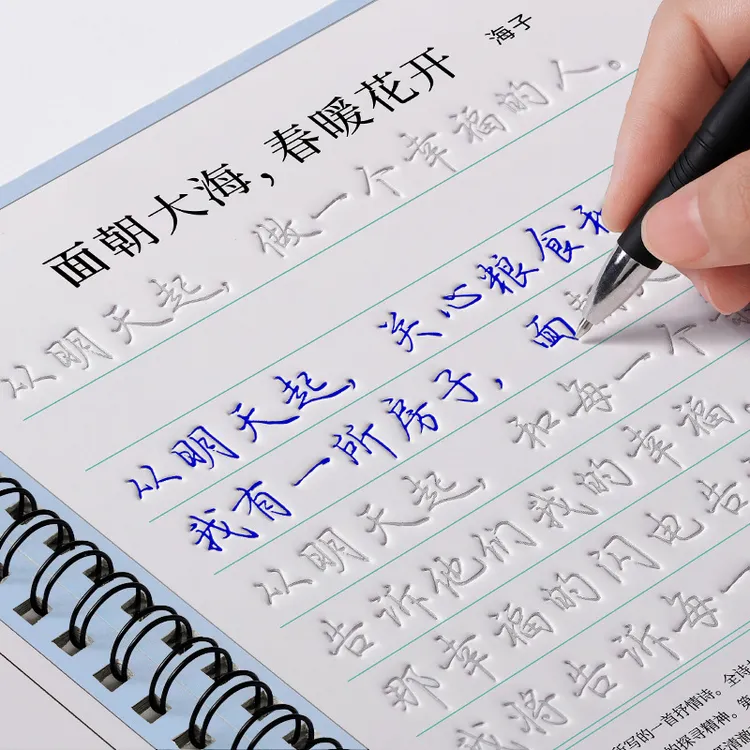 面朝大海,春暖花开
海子
从明天起,做一个幸福的人。
从明天起,关心粮食和
我有一所房子,面
从明天起,和每一个
告诉他们我的幸福,
那幸福的闪电告
我将告诉每一
写的一首抒情诗。全诗
探寻精神。第